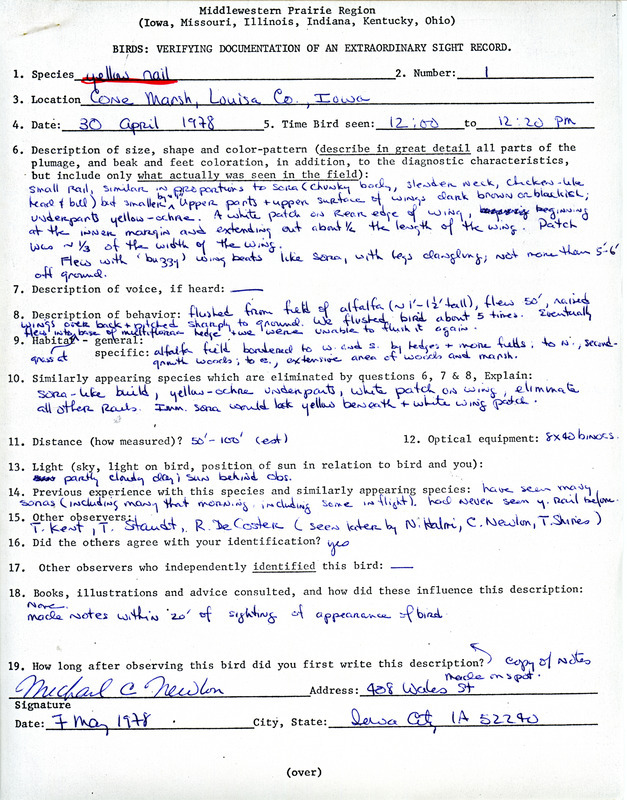 Middlewestern Prairie Region
(Iowa, Missouri, Illinois, Indiana, Kentucky, Ohio)
BIRDS: VERIFYING DOCUMENTATION OF AN EXTRAORDINARY SIGHT RECORD.
1. Species yellow rail 2. Number: 1
3. Location Cone Marsh, Louisa Co., Iowa
4. Date: 30 April 1978 5. Time Bird seen: 12:00 to 12:20 pm
6. Description of size, shape and color-pattern (describe in great detail all parts of the
plumage, and beak and feet coloration, in addition, to the diagnostic characteristics,
but include only what actually was seen in the field):
small rail, similar in proportions to sora (chunky body, slender neck, chicken-like
head & bill) but smaller. Upper parts + upper surface of wings dark brown or blackish;
underparts yellow-ochre. A white patch on rear edge of wing, beginning
at the inner margin and extending out about ½ the length of the wing. Patch
was ~ ⅓ of the width of the wing.
Flew with "buzzy" wing beats like sora, with legs dangling; not more than 5-6'
off ground.
7. Description of voice, if heard: —
8. Description of behavior: flushed from field of alfalfa (~1'-1½' tall), flew 50', raised
wings over back + pitched sharply to ground. We flushed bird about 5 times. Eventually
flew into base of multiflora hedge + we were unable to flush it again.
9. Habitat - general:
specific: alfalfa field bordered to w. and s. by hedges + more fields; to n., second-
growth woods; to e., extensive area of woods and marsh.
10. Similarly appearing species which are eliminated by questions 6, 7 & 8, Explain:
sora-like build, yellow-ochre underparts, white patch on wing eliminate
all other Rails. Imm. sora would lack yellow beneath + white wing patch.
11. Distance (how measured)? 50'-100' (est) 12. Optical equipment: 8x40 binocs.
13. Light (sky, light on bird, position of sun in relation to bird and you):
partly cloudy day; sun behind obs.
14. Previous experience with this species and similarly appearing species: have seen many
soras (including many that morning, including some in flight). had never seen y. Rail before.
15. Other observers:
T. Kent, T. Staudt, R. DeCoster (seen later by N. Halmi, C. Newlon, T. Shires)
16. Did the others agree with your identification? yes
17. Other observers who independently identified this bird: —
18. Books, illustrations and advice consulted, and how did these influence this description:
None.
made notes within 20' of sighting of appearance of bird
19. How long after observing this bird did you first write this description? copy of notes
made on spot.
Michael C Newlon Address: 408 Wales St
Signature
Date: 7 May 1978 City, State: Iowa City IA 52240
(over)